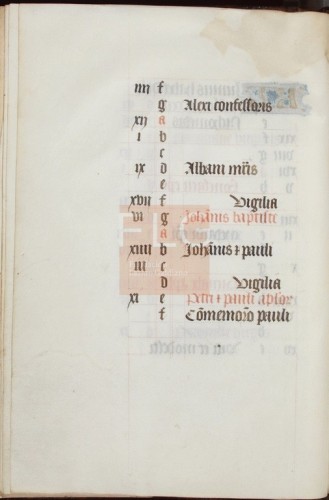 iiii f
g Alexi confessoris
xii a
i b
c
ix d Albani mr̃is
e
xvii f Vigilia
vi g Joh̃anis baptiste
a
xiiii b Joh̃anis ⁊ pauli
iii c
d Vigilia
xi e Petri ⁊ pauli ap̃lor
f Cõmemoꝛõ pauli